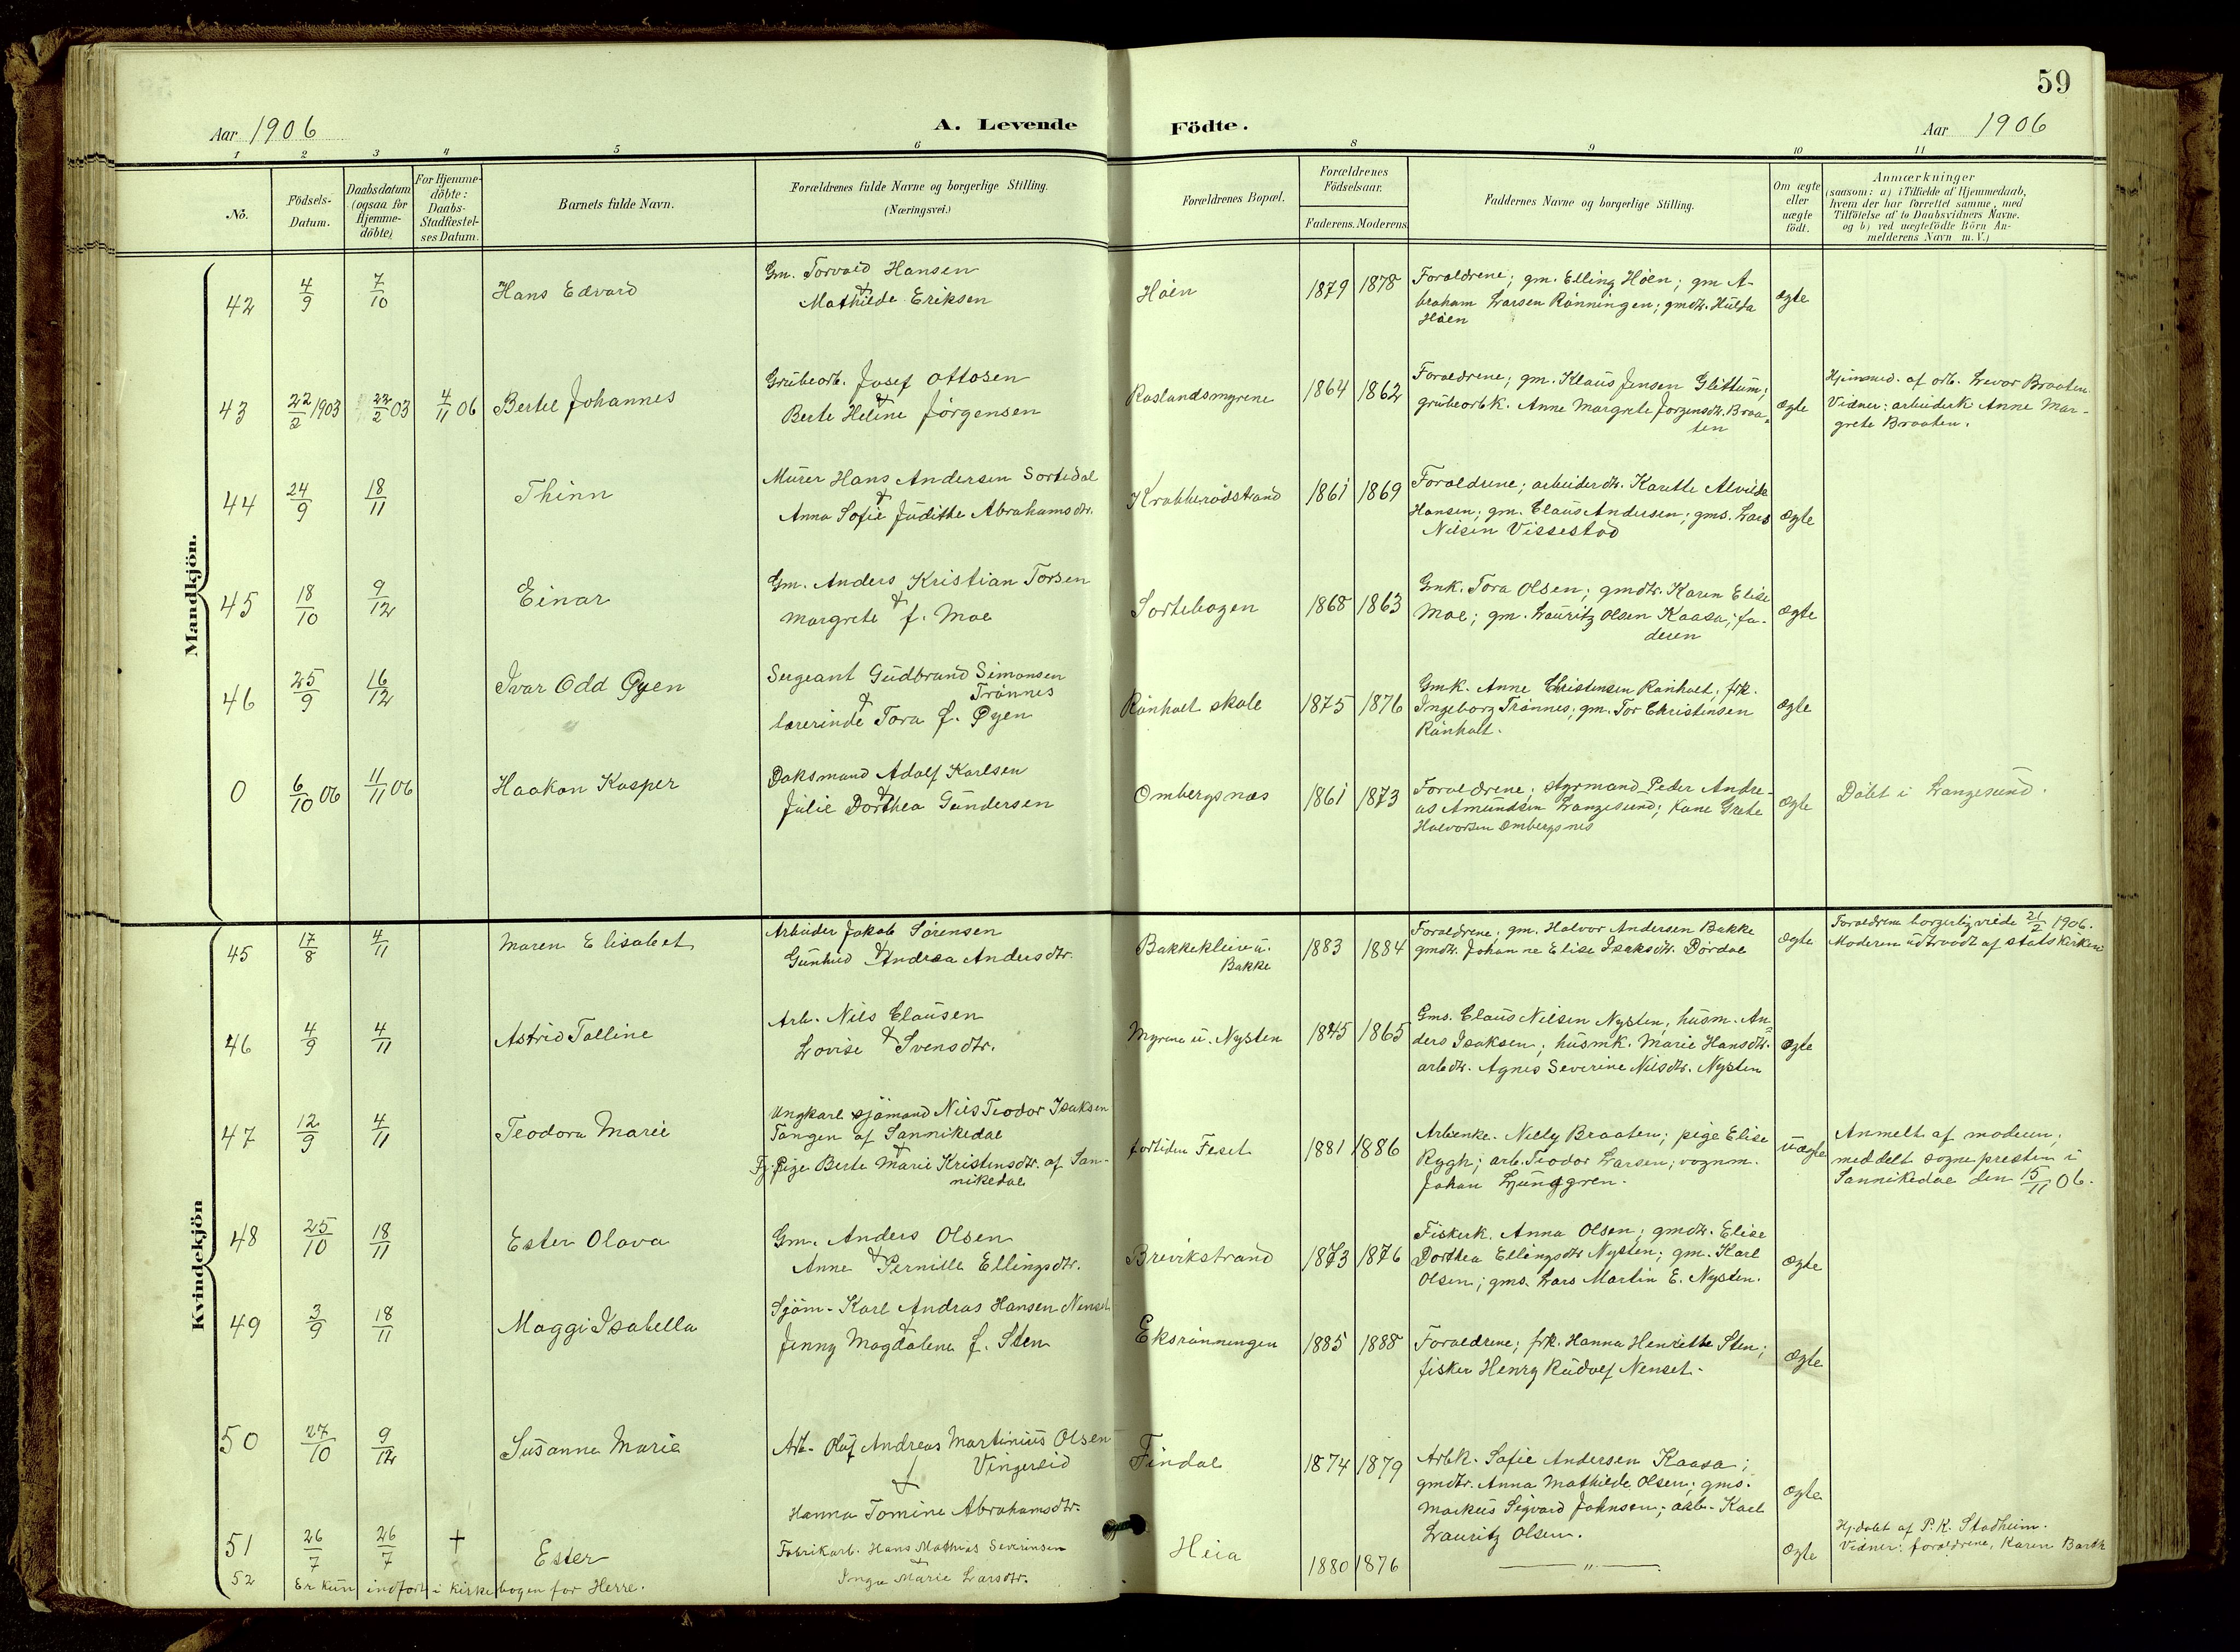 59
Aar 1906
A. Levende
Födte.
Aar 1906
1 2 3 4 5 6 8 9 10 11
No.
Födsels-
Datum.
Daabsdatum
(ogsaa for
Hjemme-
döbte)
For Hjemme-
döbte:
Daabs-
Stadfæstel-
ses Datum.
Barnets fulde Navn.
Forældrenes fulde Navne og borgerlige Stilling.
(Næringsvei.)
Forældrenes Bopæl.
Forældrenes
Födselsaar.
Faderens. Moderens.
Faddernes Navne og borgerlige Stilling.
Om ægte
eller
uægte
födt.
Anmærkninger
(saasom: a) i Tilfælde af Hjemmedaab,
hvem der har forrettet samme, med
Tilföielse af to Daabsvidners Navne.
og b) ved uægtefödte Börn An-
melderens Navn m. V.)
Mandkjön.
42
4/9
7/10
Hans Edvard
Gm. Torvald Hansen
&
Mathilde Eriksen
Håen
1879 1878
Foraldrene; gm. Elling Håen; gm A-
braham Larsen Rönningen; gmdtr. Hulda
Håen
ægte
43
22/2 1903
22/2 03
4/11 06
Bertel Johannes
Grubearb. Josef Ottosen
&
Berte Heline Jörgensen
Raslandsmyrene
1864 1862
Foraldrene; gm. Klaus Jensen Glittum;
grubearbk. Anne Margrete Jorgensdtr. Braa-
ten
ægte
Hjemmed. af arb. Levor Braaten
Vidner: arbeiderk Anne Mar-
grete Braaten.
44
24/9
18/11
Thinn
Murer Hans Andersen Sortedal
&
Anna Sofie Judithe Abrahamsdtr.
Krabberödstrand
1861 1869
Foraldrene; arbeiderdtr. Karethe Alvilde
Hansen; gm. Claus Andersen; gms. Lars
Nilsen Vissestad
ægte
45
18/10
9/12
Einar
Gm. Anders Kristian Torsen
&
Margrete f. Moe
Sortebogen
1868 1863
Gmk. Tora Olsen; gmdtr. Karen Elise
Moe; gm. Lauritz Olsen Kaasa; fa-
deren
ægte
46
25/9
16/12
Ivar Odd Öyen
Sergeant Gudbrand Simonsen
Trönnes
&
lærerinde Tora f. Öyen
Rönholt skole
1875 1876
Gmk. Anne Christensen Rönholt; frk.
Ingeborg Trönnes; gm. Tor Christensen
Rönholt.
ægte
0
6/10 06
11/11 06
Haakon Kasper
Daksmand Adolf Karlsen
&
Julie Dorthea Gundersen
Ombergsnæs
1861 1873
Foraldrene; styrmand Peder Andre-
as Amundsen Langesund; kone Grete
Halvorsen Ombergsnes
ægte
Döbt i Langesund.
Kvindekjön
45
17/8
4/11
Maren Elisabet
Arbeider Jakob Sörensen
&
Gunhild Andrea Andersdtr.
Bakkekleiva u.
Bakke
1883 1884
Foraldrene; gm. Halvor Andersen Bakke
gmdtr. Johanne Elise Isaksdtr. Dördal
ægte
Foraldrene borgerlig viede 21/2 1906.
Moderen udtraadt af statskirken
46
4/9
4/11
Astrid Talline
Arb. Nils Clausen
&
Lovise Svensdtr.
Myrene u. Nysten
1845 1865
Gms. Claus Nilsen Nysten; husm. An-
ders Isaksen; husmk. Marie Hansdtr.
arbdtr. Agnes Severine Nilsdtr. Nysten
ægte
47
12/9
4/11
Teodora Marie
Ungkarl sjömand Nils Teodor Isaksen
Tangen af Sannikedal
&
Pige Berte Marie Kristensdtr. af San-
nikedal
fortiden Feset
1881 1886
Arbenke. Nelly Braaten; pige Elise
Rygh; arb. Teodor Larsen; vognm.
Johan Ljunggren.
uægte
Anmelt af moderen;
meddelt sognepresten i
Sannikedal den 15/11 06.
48
25/10
18/11
Ester Olava
Gm. Anders Olsen
&
Anne Pernille Ellingsdtr.
Brevikstrand
1873 1876
Fiskerk. Anna Olsen; gmdtr. Elise
Dorthea Ellingsdtr Nysten; gm. Karl
Olsen; gms. Lars Martin E. Nysten.
ægte
49
3/9
18/11
Maggi Isabella
Sjöm. Karl Andras Hansen Nenset
&
Jenny Magdalena f. Sten
Eksrönningen
1885 1888
Foraldrene; frk. Hanna Henriette Sten;
fisker Henry Rudolf Nenset.
ægte
50
27/10
9/12
Susanna Marie
Arb. Oluf Andreas Martinius Olsen
Vingereid
&
Hanna Tomine Abrahamsdtr.
Findal
1874 1879
Arbk. Sofie Andersen Kaasa;
gmdtr. Anna Mathilde Olsen; gms.
Markus Sigvard Johnsen; arb. Karl
Lauritz Olsen.
ægte
51
26/7
26/7
+
Ester
Fabrikarb. Hans Mathias Severinsen
&
Inga Marie Larsdtr.
Heia
1880 1876
— " —
ægte
Hj. döbt af P. K. Stadheim.
Vidner: foraldrene, Karen Barth
52 Er kun indfort i kirkebogen for Herre.